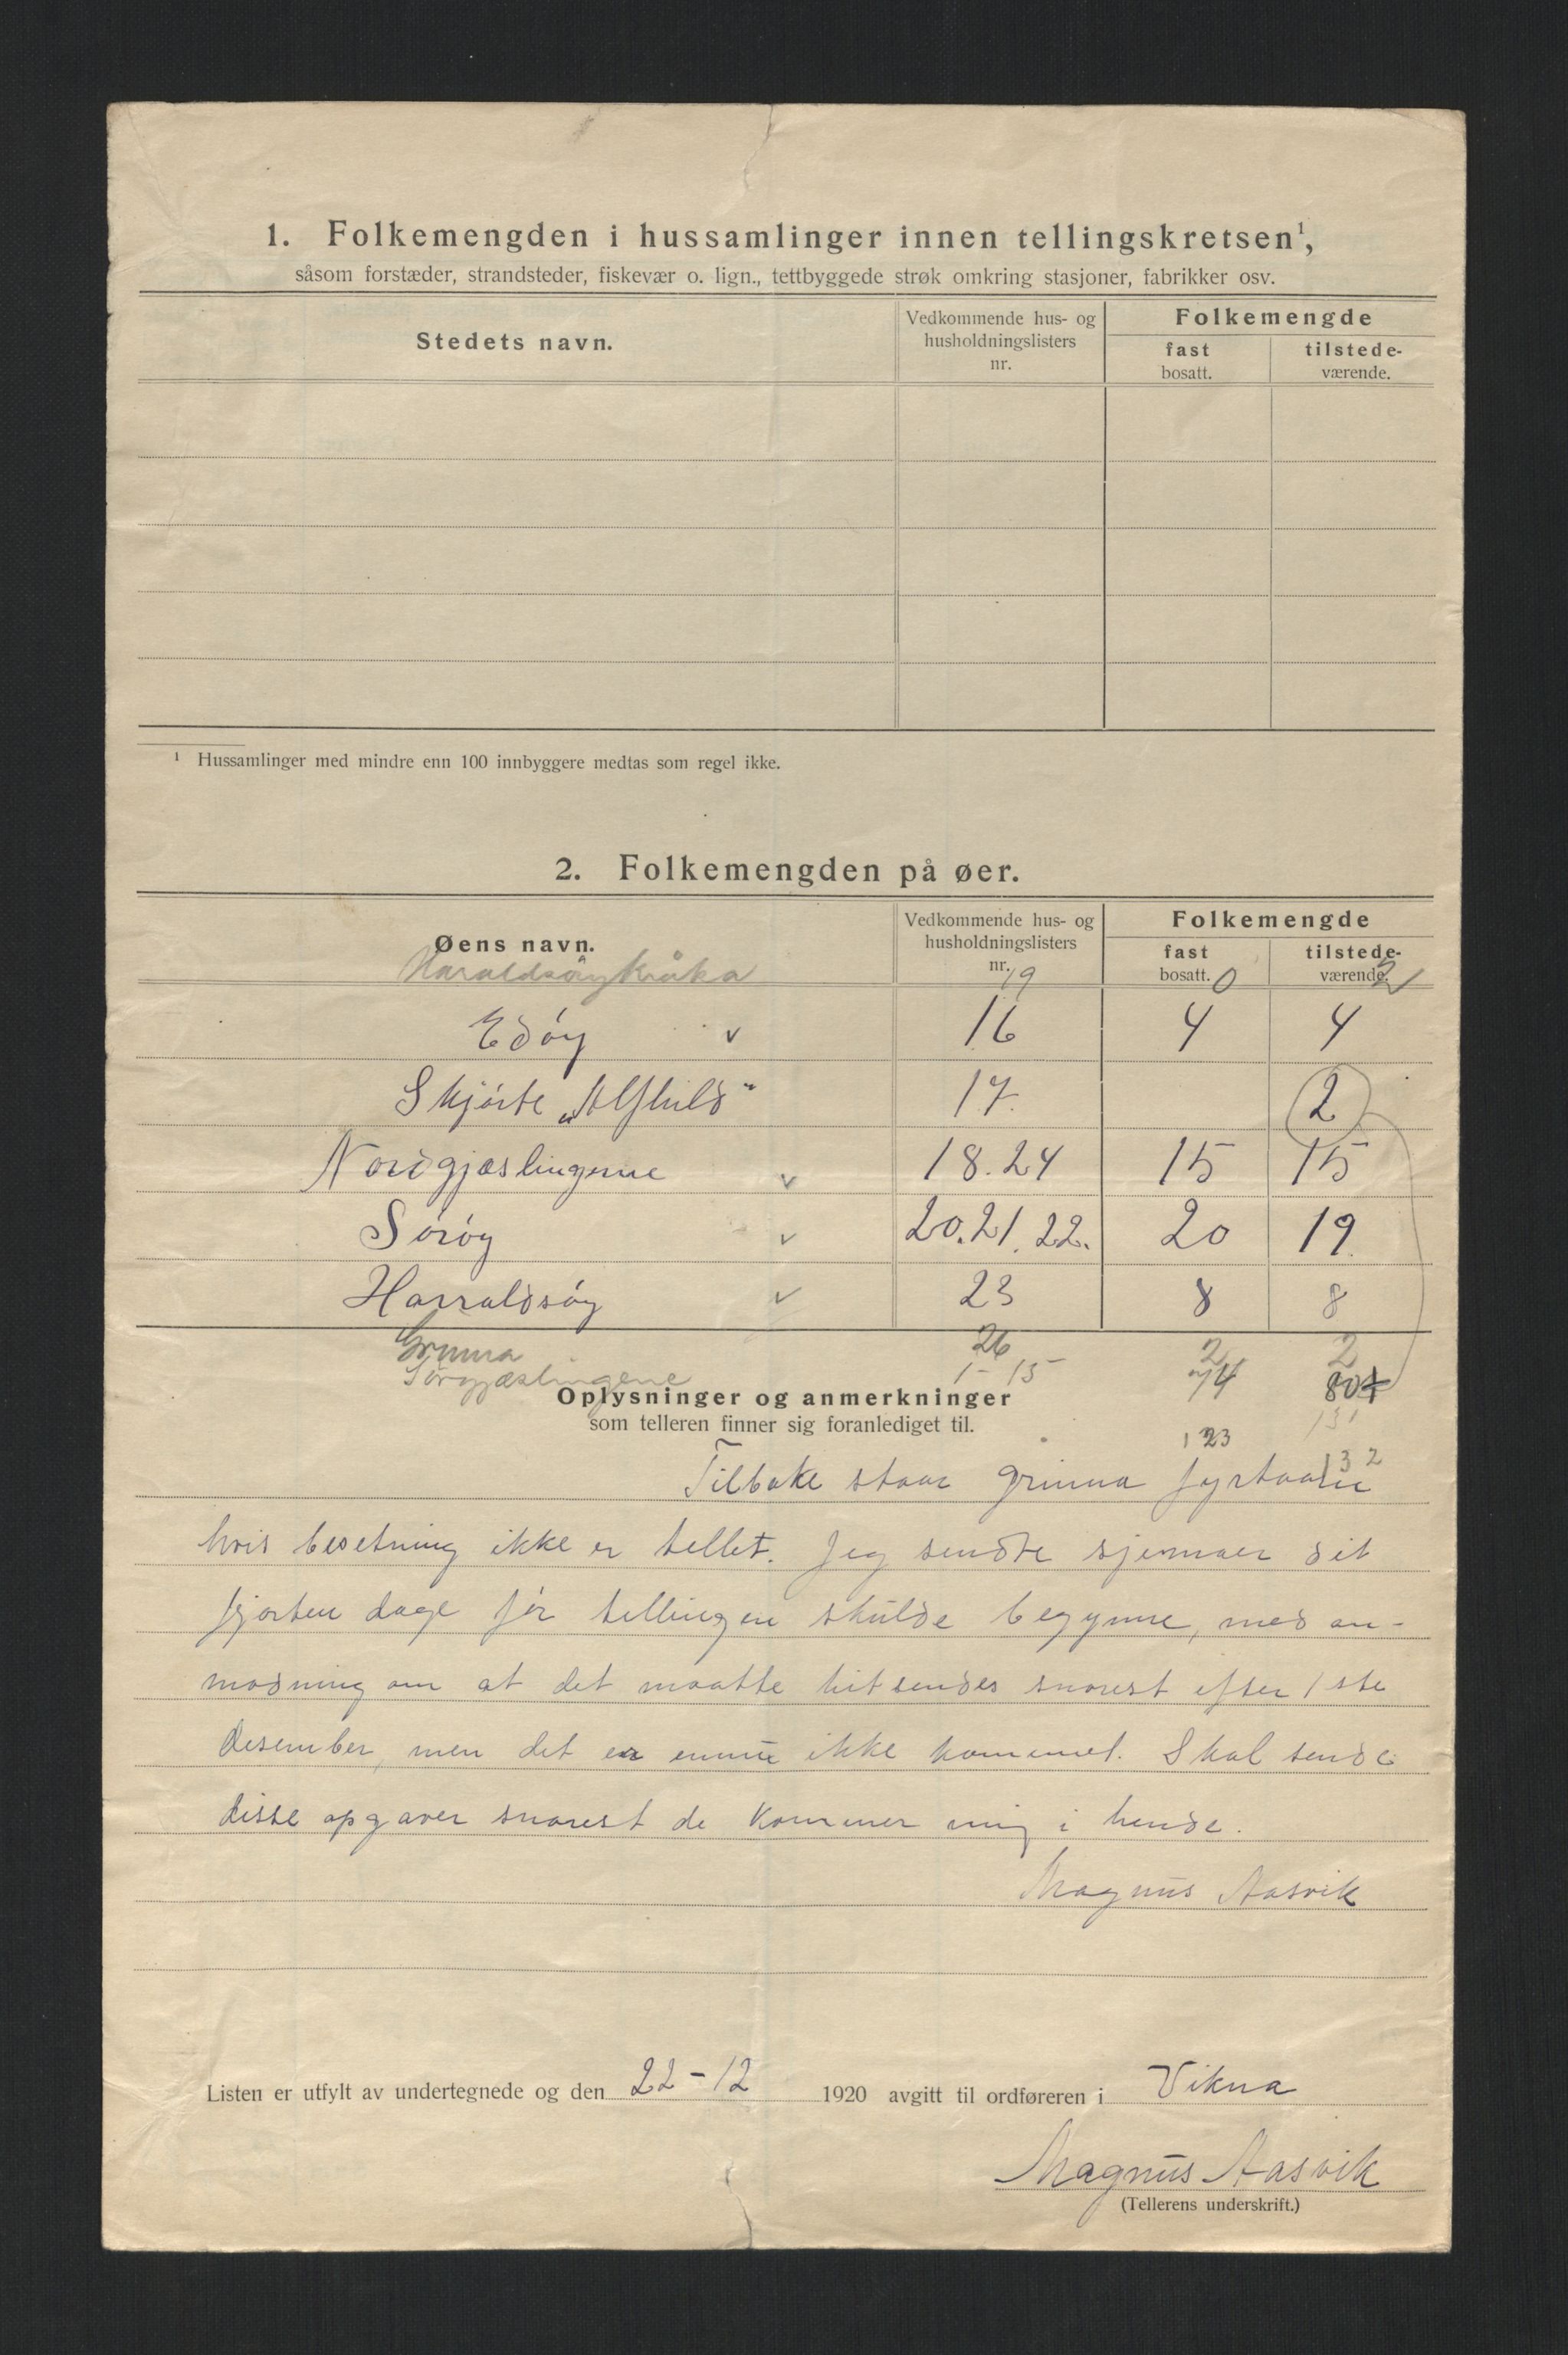 1. Folkemengden i hussamlinger innen tellingskretsen¹,
såsom forstæder, strandsteder, fiskevær o. lign., tettbyggede strøk omkring stasjoner, fabrikker osv.
Stedets navn.
Vedkommende hus- og husholdningslisters nr.
Folkemengde
fast bosatt.
tilstede-værende.
¹ Hussamlinger med mindre enn 100 innbyggere medtas som regel ikke.
2. Folkemengden på øer.
Øens navn.
Vedkommende hus- og husholdningslisters nr.
Folkemengde
fast bosatt.
tilstede-værende.
Haraldsöykråka 19 0 2
Edöy v 16 4 4
Skjörte „Alfhild" 17. 2
Nordgjæslingerne v 18.24 15 15
Söröy v 20.21.22. 20 19.
Harraldsöy v 23 8 8
Grinna 26 2 2
Sørgjæslingene 1-15 74 80
131
123
132
Oplysninger og anmerkninger
som telleren finner sig foranlediget til.
Tilbake staar Grinna fyrtaarn
hvis besetning ikke er tellet. Jeg sendte sjemaer dit
fjorten dage för tellingen skulde begynne, med an-
modning om at det maatte hitsendes snarest efter 1ste
desember, men det er ennu ikke kommet. Skal sende
disse opgaver snarest de kommer mig i hende.
Magnus Aasvik
Listen er utfylt av undertegnede og den 22-12 1920 avgitt til ordføreren i Vikna
Magnus Aasvik
(Tellerens underskrift.)